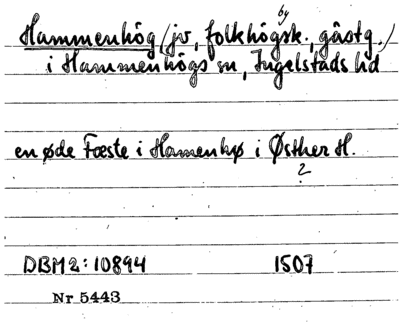 by
Hammenhög (jv, folkhögsk., gästg.)
i Hammenhögs sn, Ingelstads hd
en øde Fæste i Hamenhø i Østher H.
?
DBM2:10894 1507
Nr 5443